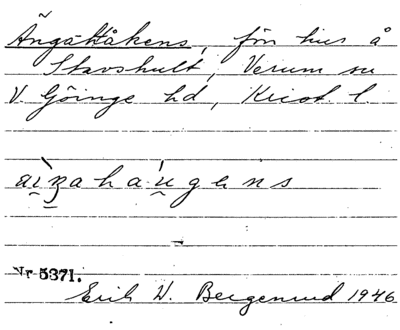 Ängahåkens, förr hus å
Stavshult, Verum sn
V. Göinge hd, Krist. l.
Nr 5371.
Erik W. Bergenrud 1946